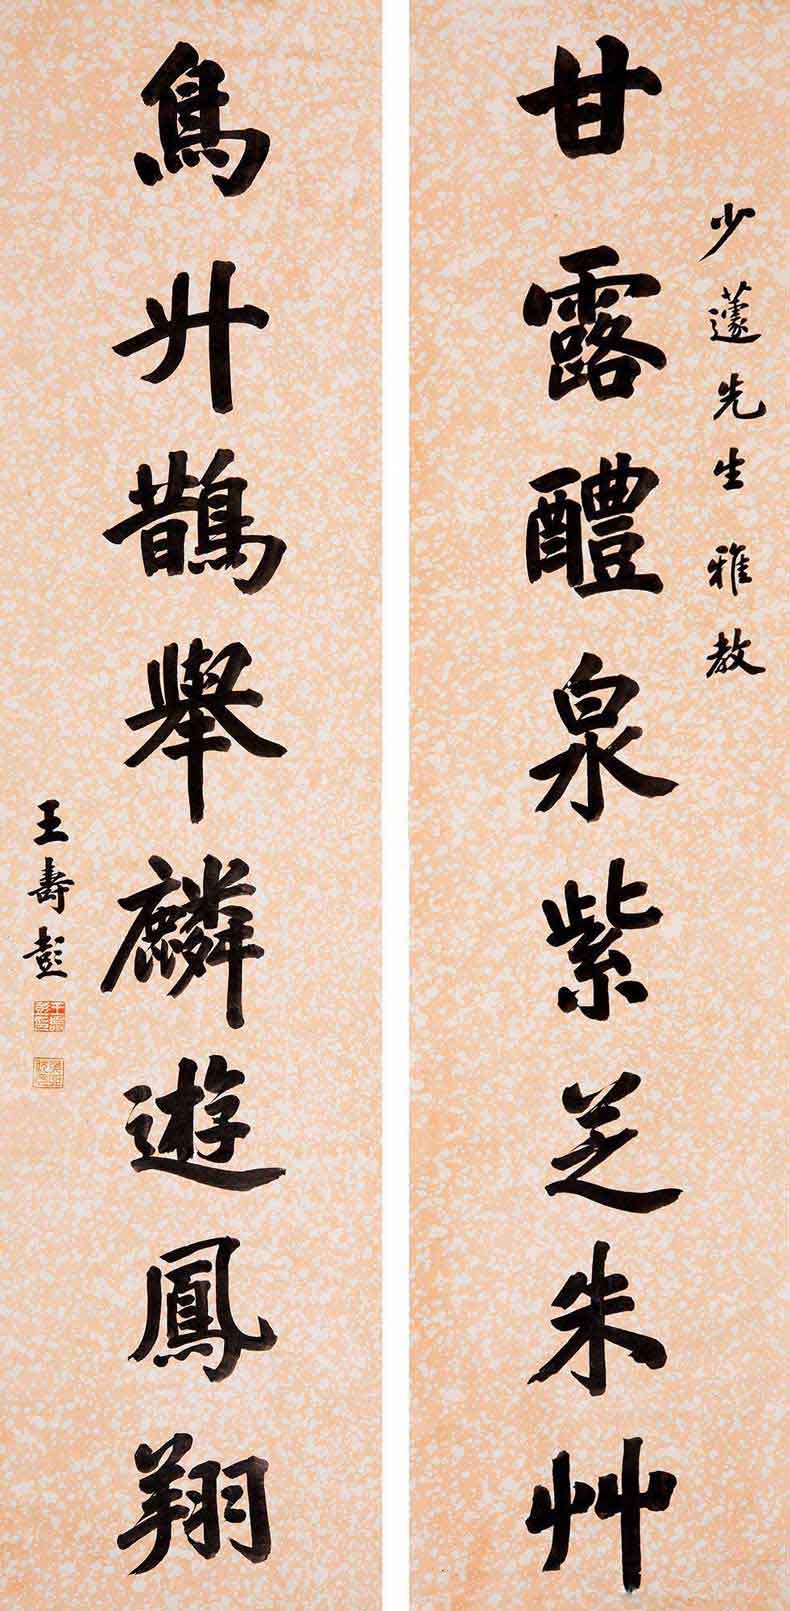 少蘧先生雅教
甘露醴泉紫芝朱艸
鳥升鵲舉麟遊鳳翔
王壽彭